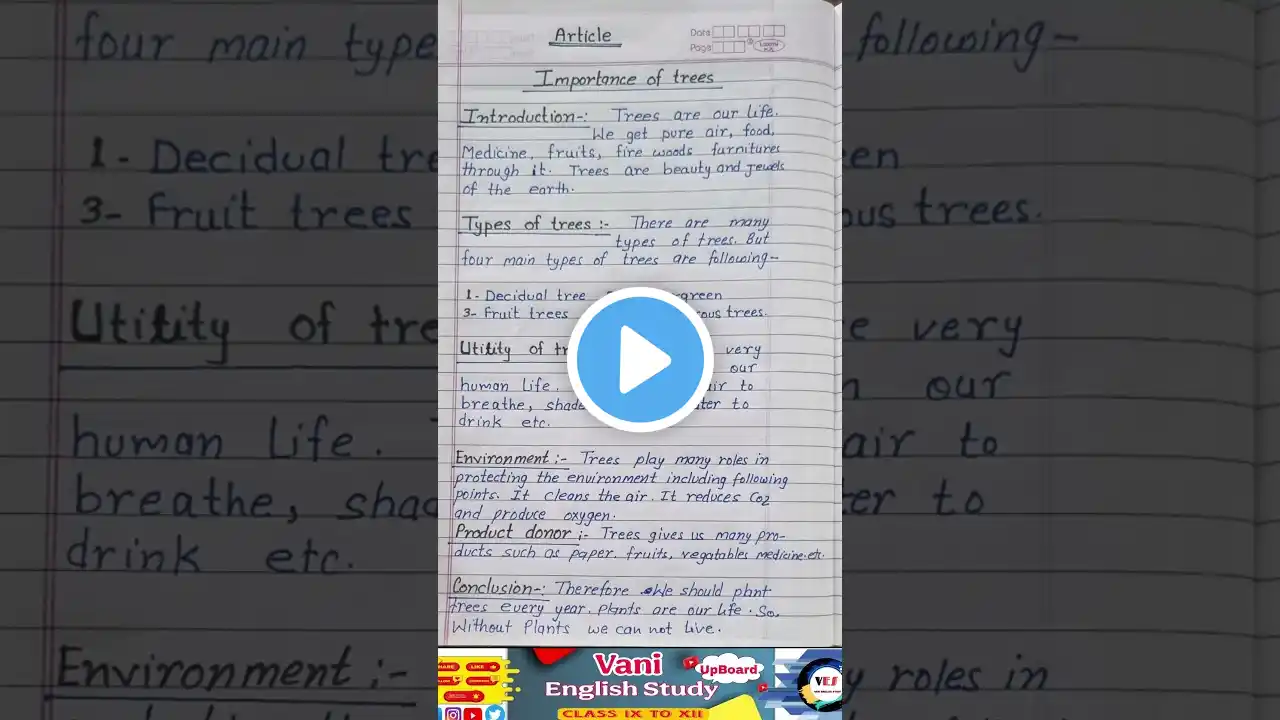 Article
Date
Page
Importance of trees
Introduction-: Trees are our life.
We get pure air, food,
Medicine, fruits, fire woods furnitures
through it. Trees are beauty and Jewels
of the earth.
Types of trees :- There are many
types of trees. But
four main types of trees are following-
1- Decidual tree green
3- Fruit trees ous trees.
Utility of tr very
our
human Life. air to
breathe, shade ter to
drink etc.
Environment :- Trees play many roles in
protecting the environment including following
points. It cleans the air. It reduces Co2
and produce oxygen.
Product donor ;- Trees gives us many pro-
ducts such as paper, fruits, vegatables medicine.etc.
Conclusion-: Therefore We should plant
trees every year. Plants are our life. So,
Without Plants we can not Live.
Vani
English Study
UpBoard
CLASS IX TO XII
LIKE
VES
four main type following-
1- Decidual tre en
3- Fruit trees ous trees.
Utility of tre e very
our
human Life. air to
breathe, shad ter to
drink etc.
Environment :- y roles in